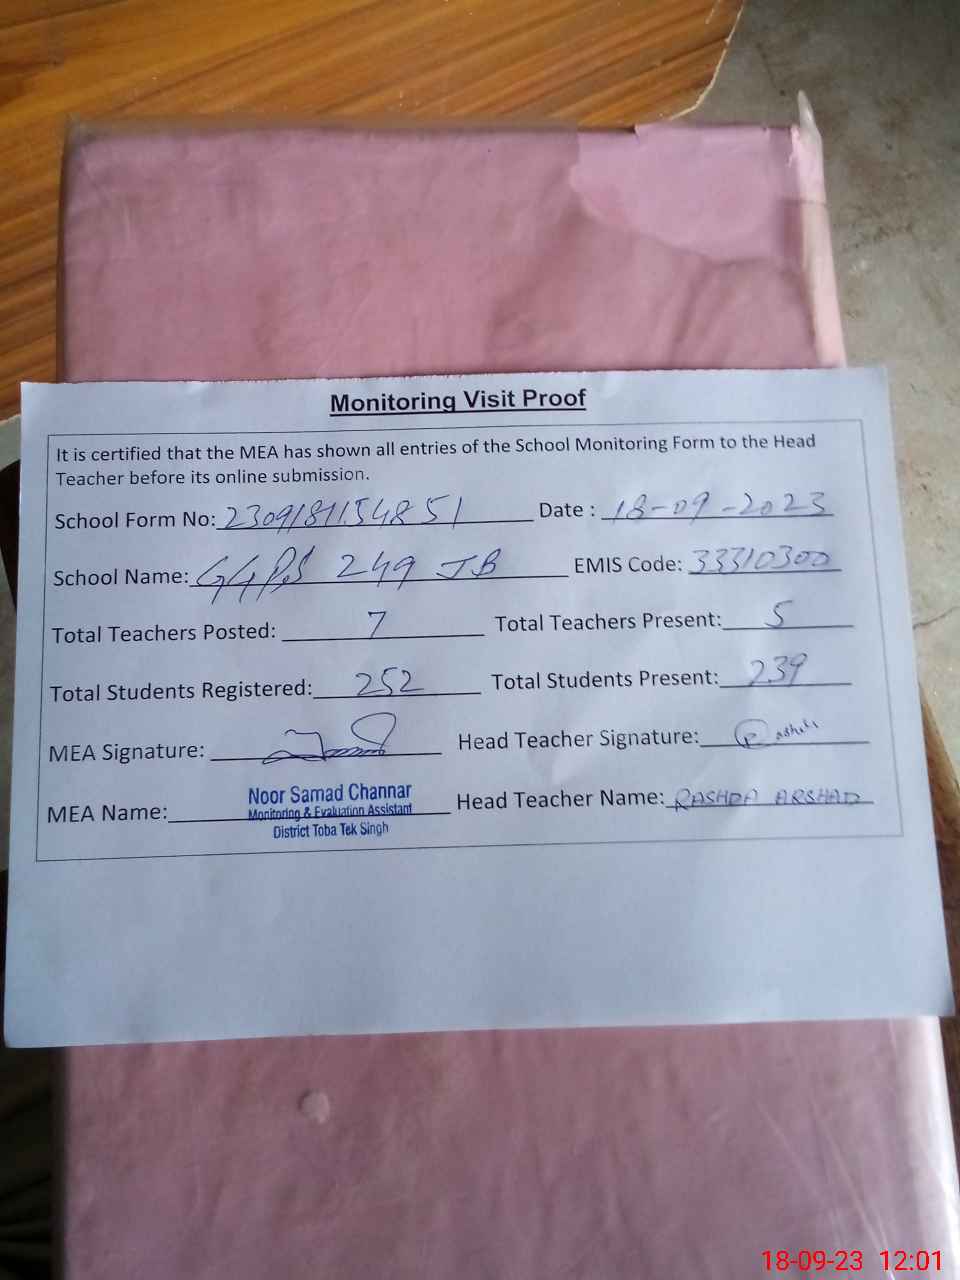 Monitoring Visit Proof
It is certified that the MEA has shown all entries of the School Monitoring Form to the Head
Teacher before its online submission.
School Form No: 2309181154851 Date : 18-09-2023
School Name: GGPS 249 JB EMIS Code: 33310300
Total Teachers Posted: 7 Total Teachers Present: 5
Total Students Registered: 252 Total Students Present: 239
MEA Signature: Head Teacher Signature:
MEA Name: Noor Samad Channar Head Teacher Name: RASHDA ARSHAD
Monitoring & Evaluation Assistant
District Toba Tek Singh
18-09-23 12:01